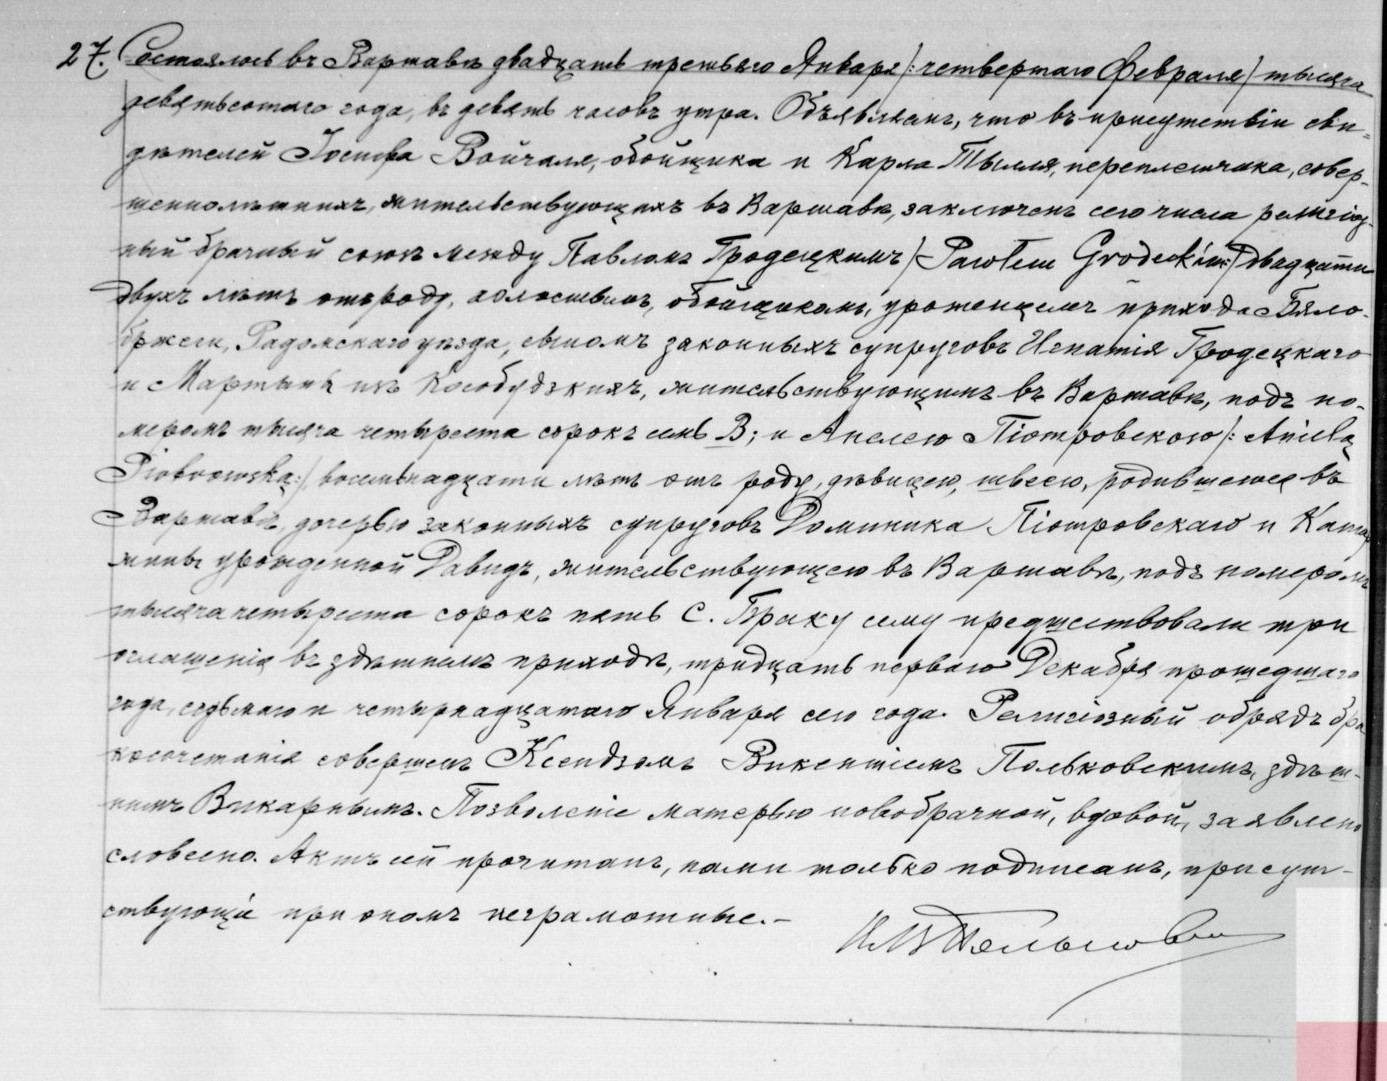 27. Состоялось въ Варшавѣ двадцать третьяго Января /: четвертаго Февраля / тысяча
девятьсотаго года, въ девять часовъ утра. Объявляемъ, что въ присутствіи сви-
дѣтелей Іосифа Войчаля, обойщика и Карла Тылля, переплетчика, совер-
шеннолѣтнихъ, жительствующихъ въ Варшавѣ, заключенъ сего числа религіоз-
ный брачный союзъ между Павломъ Гродецкимъ /: Pawłem Grodeckim :/ двадцати
двухъ лѣтъ отъ роду, холостымъ, обойщикомъ, уроженцемъ прихода Бяло-
бржеги, Радомскаго уѣзда, сыномъ законныхъ супруговъ Игнатія Гродецкаго
и Мартыны изъ Кособудзкихъ, жительствующимъ въ Варшавѣ, подъ но-
меромъ тысяча четыреста сорокъ семь В; и Анелею Піотровскою /: Anielą
Piotrowską :/ восемьнадцати лѣтъ отъ роду, дѣвицею, швеею, родившеюся въ
Варшавѣ, дочерью законныхъ супруговъ Доминика Піотровскаго и Ката-
жины урожденной Давидъ, жительствующею въ Варшавѣ, подъ номеромъ
тысяча четыреста сорокъ пять С. Браку сему предшествовали три
оглашенія въ здѣшнемъ приходѣ, тридцать перваго Декабря прошедшаго
года, седьмаго и четырнадцатаго Января сего года. Религіозный обрядъ бра
косочетанія совершенъ Ксендзомъ Викентіемъ Польковскимъ, здѣш-
нимъ Викарнымъ. Позволеніе матерью новобрачной, вдовой, заявлено
словесно. Актъ сей прочитанъ, нами только подписанъ, присут-
ствующіе при ономъ неграмотные.-